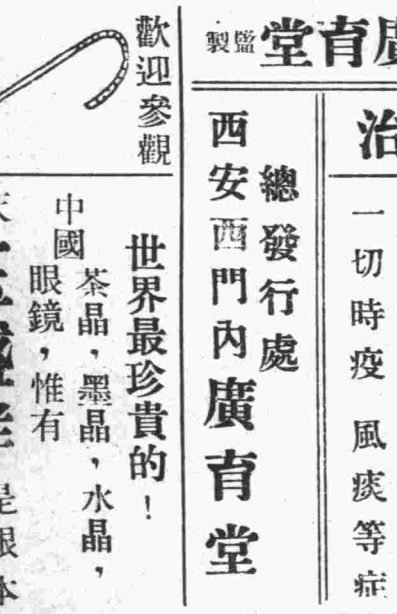 廣育堂
監製
治
一切時疫 風痰等症
總發行處
西安西門內廣育堂
歡迎參觀
世界最珍貴的！
中國
茶晶，墨晶，水晶，
眼鏡，惟有
是眼本